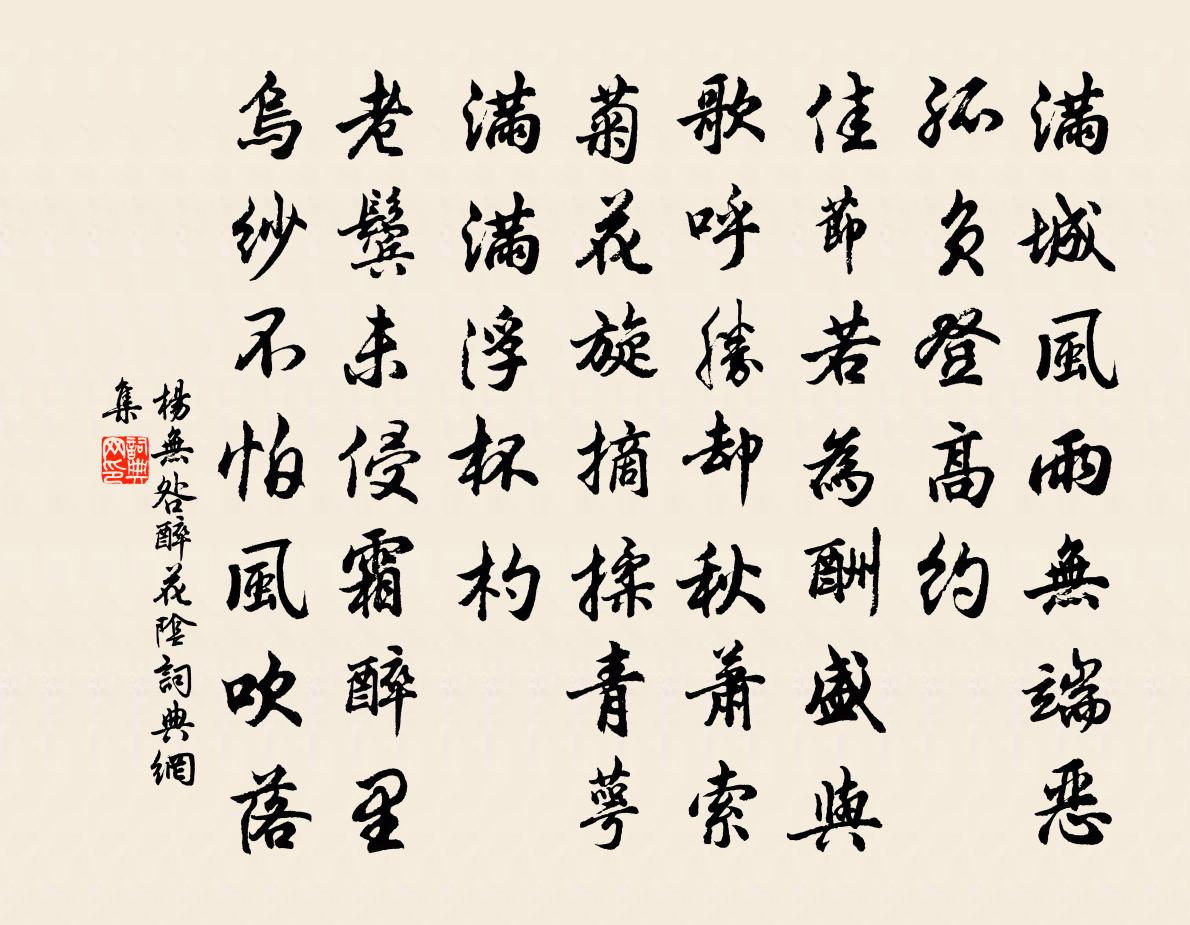 滿城風雨無端惡
孤負登高約
佳節若為酬盛與
歌呼勝却秋蕭索
菊花旋摘揉青萼
滿滿浮杯杓
老鬢未侵霜醉里
烏紗不怕風吹落
楊無咎醉花陰詞典網
集
詞典網印